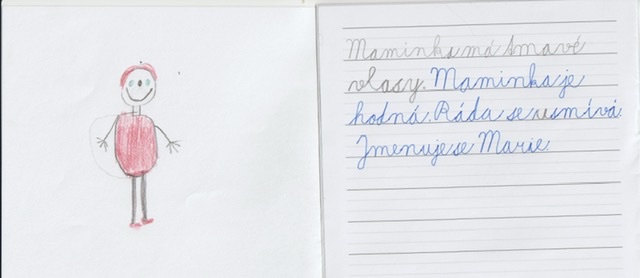 Maminka má tmavé
vlasy. Maminka je
hodná. Ráda se usmívá.
Jmenuje se Marie.